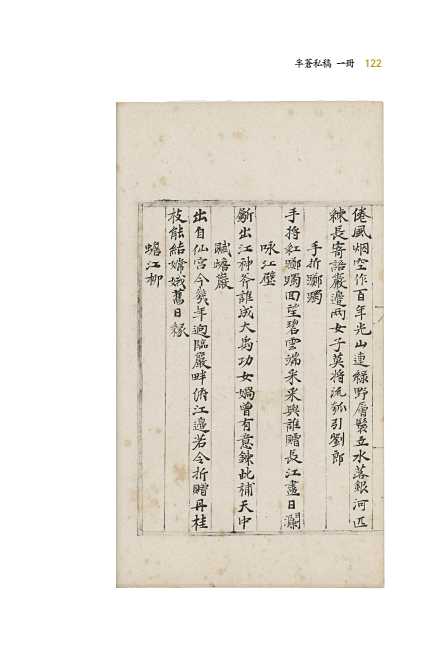 半蒼私稿 一冊 122
倦風烟空作百年光山連綠野層鬟五水落銀河匹
練長寄語巖邊兩女子莫將流瓠引劉郎
手折躑躅
手持紅躑躅回望碧雲端采采與誰贈長江盡日瀾
咏江壁
斸出江神斧誰成大禹功女媧曾有意鍊此補天中
賦蟾巖
出自仙宮今幾年逈臨巖畔俯江邊若令折贈丹桂
枝能結嫦娥舊日緣
蟾江柳